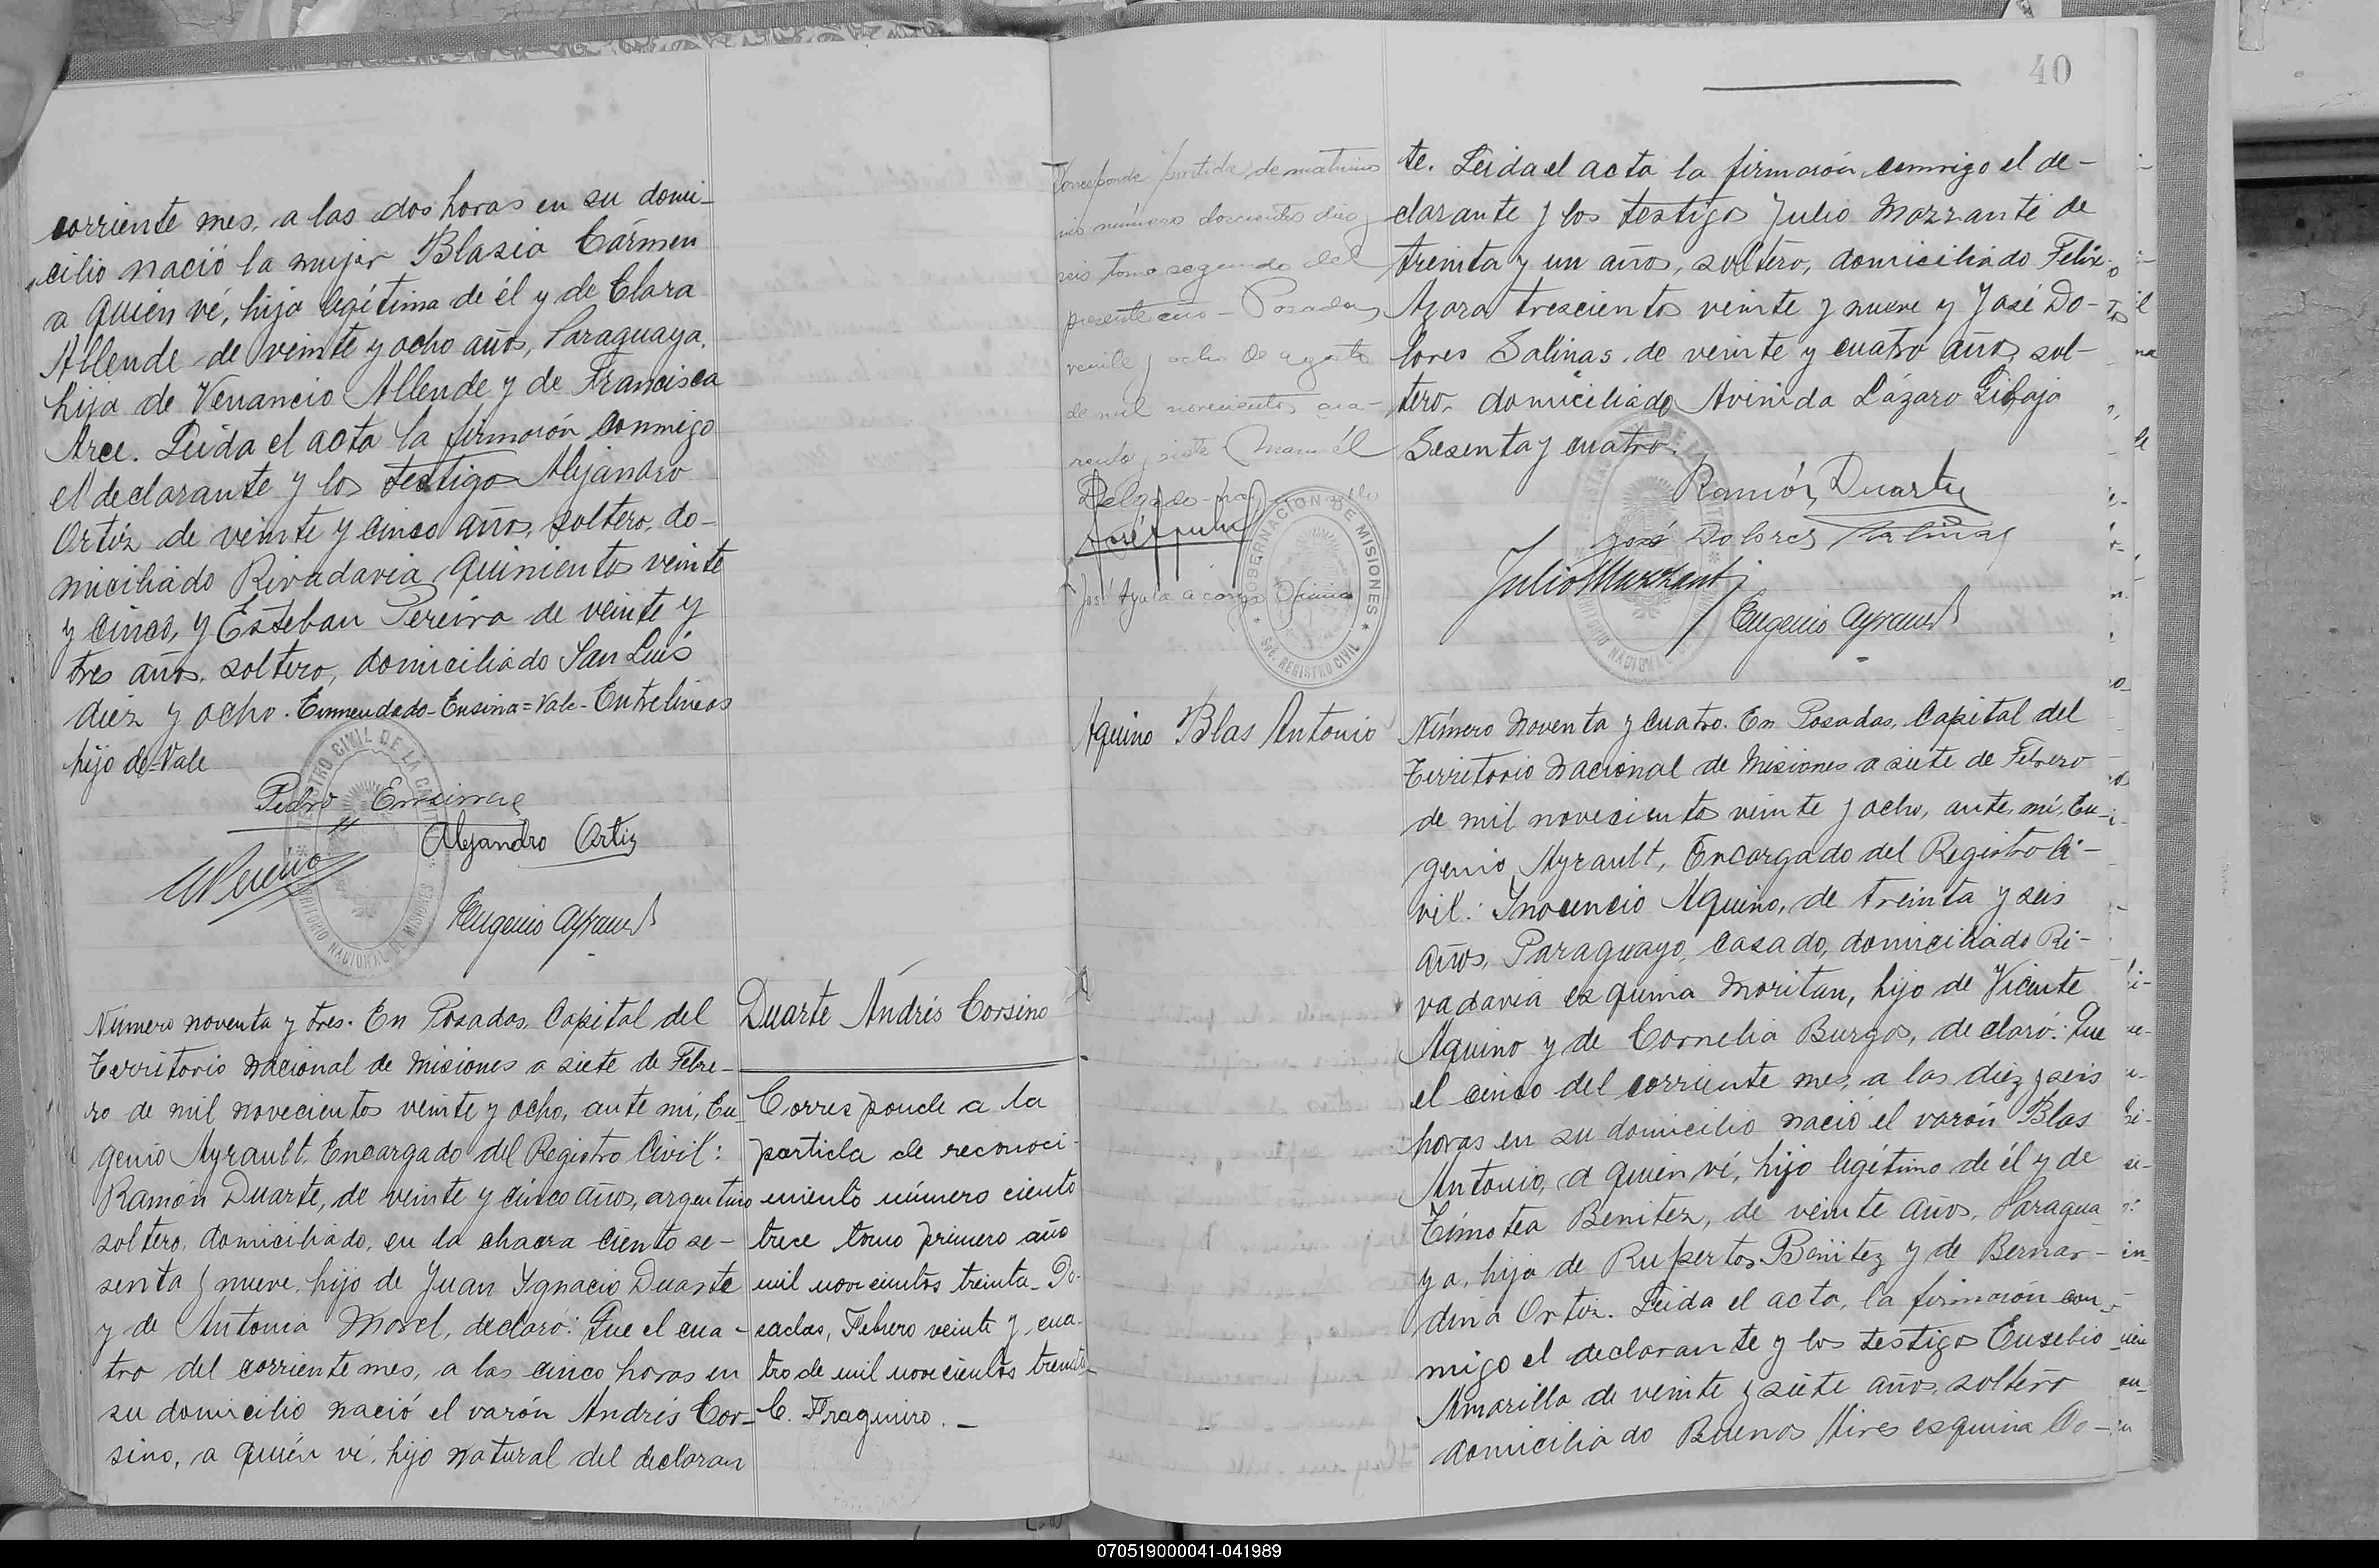 corriente mes, a las dos horas en su domi-
cilio nació la mujer Blasia Cármen
a quién ví, hija legítima de él y de Clara
Allende de veinte y ocho años, Paraguaya,
hija de Venancio Allende y de Francisca
Arce. Leida el acta la firmarón conmigo
el declarante y los testigos Alejandro
Ortíz de veinte y cinco años, soltero, do-
miciliado Rivadavia quinientos veinte
y cinco, y Esteban Pereira de veinte y
tres años, soltero, domiciliado San Luis
diez y ocho. Enmendado-Ensina=Vale-Entrelineas
hijo de-Vale
REGISTRO CIVIL DE LA CAPITAL
TERRITORIO NACIONAL DE MISIONES
Pedro
Alejandro Ortiz
Eugenio Ayrault
Número noventa y tres. En Posadas, Capital del
Territorio Nacional de Misiones a siete de Febre-
ro de mil novecientos veinte y ocho, ante mí, Eu-
genio Ayrault, Encargado del Registro Civil:
Ramón Duarte, de veinte y cinco años, argentino
soltero, domiciliado, en la chacra ciento se-
senta y nueve, hijo de Juan Ygnacio Duarte
y de Antonia Morel, declaró: Que el cua-
tro del corriente mes, a las cinco horas en
su domicilio nació el varón Andrés Cor-
sino, a quién ví, hijo natural del declaran
Duarte Andrés Corsino
Corresponde a la
partida de reconoci-
miento número ciento
trece tomo primero año
mil novecientos treinta- Po-
sadas, Febrero veinte y cua-
tro de mil novecientos treinta-
C. Fragueiro.-
40
Corresponde partida de matrimo
nio número doscientos diez y
seis tomo segundo del
presente año - Posadas
veinte y ocho de agosto
de mil novecientos cua-
renta y siete Manuel
Delgado
José Ayala a cargo Oficina
GOBERNACION DE MISIONES
SEC. REGISTRO CIVIL
te. Leida el acta la firmarón conmigo el de-
clarante y los testigos Julio Mazzante de
treinta y un años, soltero, domiciliado Felix
Azara trescientos veinte y nueve y José Do-
lores Salinas, de veinte y cuatro años, sol-
tero, domiciliado Avinida Lázaro Gibaja
Sesenta y cuatro.
Ramón Duarte
José Dolores Salinas
Julio Mazzanti
Eugenio Ayrault
Aquino Blas Antonio
Número Noventa y Cuatro. En Posadas, Capital del
Territorio Nacional de Misiones a siete de Febrero
de mil novecientos veinte y ocho, ante, mí, Eu-
genio Ayrault, Encargado del Registro Ci-
vil: Inocencio Aquino, de treinta y seis
años, Paraguayo, casado, domiciliado Ri-
vadavia esquina Moritan, hijo de Vicente
Aquino y de Cornelia Burgos, declaró: Que
el cinco del corriente mes, a las diez y seis
horas en su domicilio nació el varón Blas
Antonio, a quien ví, hijo legítimo de él y de
Tímotea Benitez, de veinte años, Paragua
ya, hija de Rupertos Benitez y de Bernar-
dina Ortiz. Leida el acta, la firmarón con
migo el declarante y los testigos Eusebio
Amarilla de veinte y siete años, soltero
domiciliado Buenos Aires esquina Co-
070519000041-041989